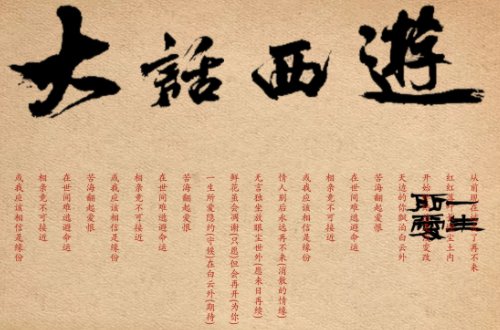 大話西遊
一生
所愛
从前了再不来
红红土内
开始变改
天边的你飘泊白云外
苦海翻起爱恨
在世间难逃避命运
相亲竟不可接近
或我应该相信是缘份
情人别后永远再不来(消散的情缘)
无言独坐放眼尘世外(愿来日再续)
鲜花虽会凋谢(只愿)但会再开(为你)
一生所爱隐约(守候)在白云外(期待)
苦海翻起爱恨
在世间难逃避命运
相亲竟不可接近
或我应该相信是缘份
苦海翻起爱恨
在世间难逃避命运
相亲竟不可接近
或我应该相信是缘份